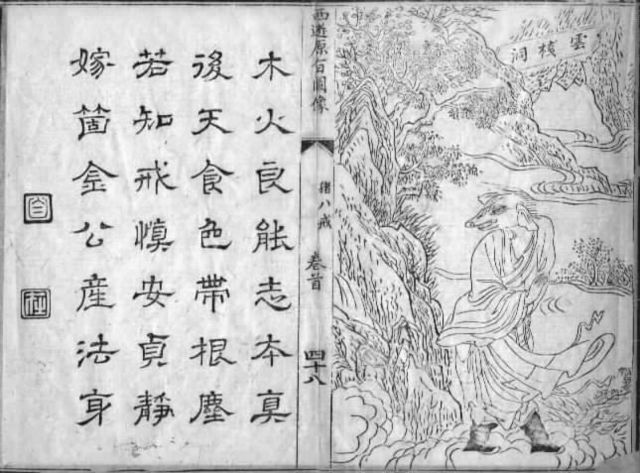 雲棧洞
西遊原旨圖像
猪八戒
卷首
四十八
木火良能志本真
後天食色帶根塵
若知戒慎安貞靜
嫁箇金公產法身